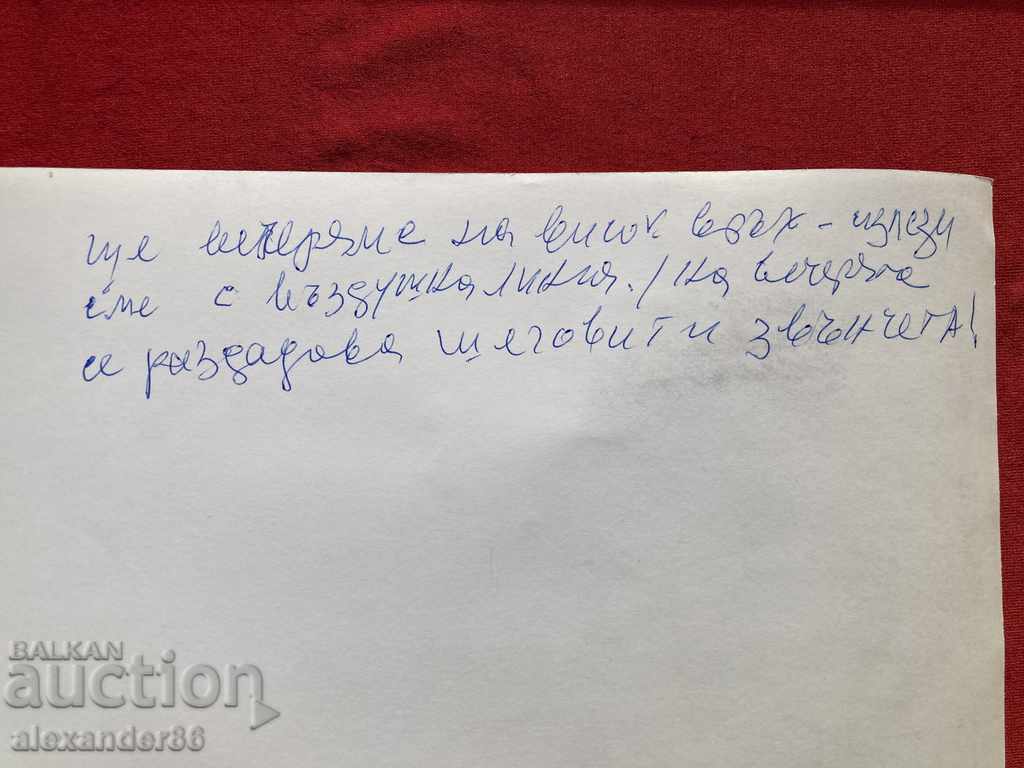 ще вечеряме на висок връх - излези
сме с въздушна линия. / на вечеря
се раздадова шеговити звънчета!
BALKAN
auction
alexander86